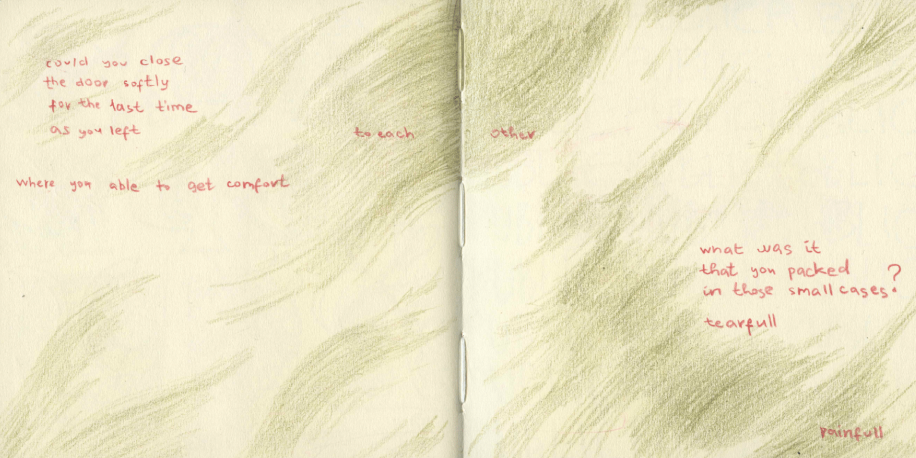 could you close
the door softly
for the last time
as you left
to each other
where you able to get comfort
what was it
that you packed
in those small cases?
tearfull
rainfull